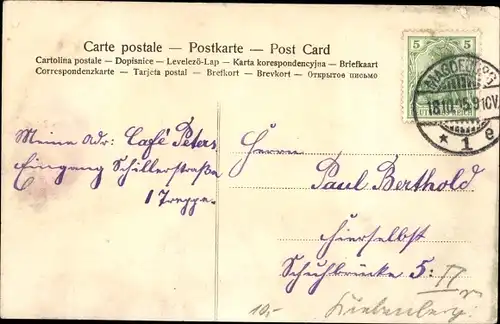 Carte postale — Postkarte — Post Card
Cartolina postale — Dopisnice — Levelező-Lap — Karta korespondencyjna — Briefkaart
Correspondenzkarte — Tarjeta postal — Brefkort — Brevkort — Открытое письмо
5 5
MAGDEBURG
18.10.05.9-10V.
* 1 e
Meine Adr: Café Peters
Eingang Schillerstraße
1 Treppe.
Herrn
Paul Berthold
Hierselbst
Schuhbrücke 5: II r
10,-